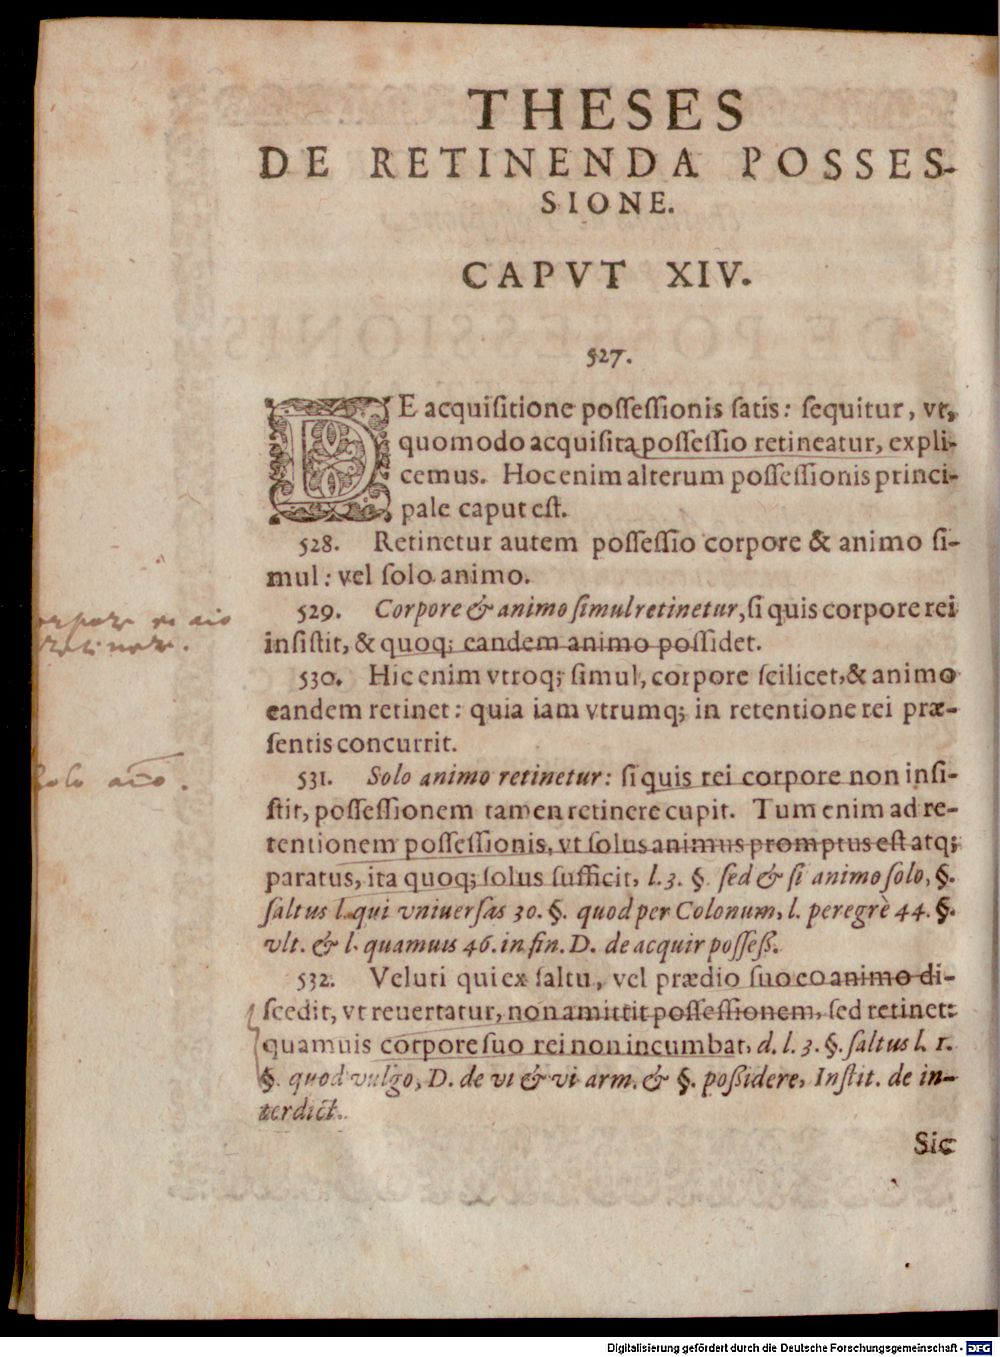 THESES
DE RETINENDA POSSES-
SIONE.
CAPVT XIV.
527.
DE acquisitione possessionis satis: sequitur, vt,
quomodo acquisita possessio retineatur, expli-
cemus. Hoc enim alterum possessionis princi-
pale caput est.
528. Retinetur autem possessio corpore & animo si-
mul: vel solo animo.
529. Corpore & animo simul retinetur, si quis corpore rei
insistit, & quoq; eandem animo possidet.
530. Hic enim vtroq; simul, corpore scilicet, & animo
eandem retinet: quia iam vtrumq; in retentione rei præ-
sentis concurrit.
531. Solo animo retinetur: si quis rei corpore non insi-
stit, possessionem tamen retinere cupit. Tum enim ad re-
tentionem possessionis, vt solus animus promptus est atq;
paratus, ita quoq; solus sufficit, l. 3. §. sed & si animo solo, §.
saltus l. qui vniuersas 30. §. quod per Colonum, l. peregrè 44. §.
vlt. & l. quamuis 46. in fin. D. de acquir possess.
532. Veluti qui ex saltu, vel prædio suo eo animo di-
scedit, vt reuertatur, non amittit possessionem, sed retinet:
quamuis corpore suo rei non incumbat, d. l. 3. §. saltus l. 1.
§. quod vulgo, D. de vi & vi arm. & §. possidere, Instit. de in-
terdict.
Sic
retinere.
solo
Digitalisierung gefördert durch die Deutsche Forschungsgemeinschaft - DFG